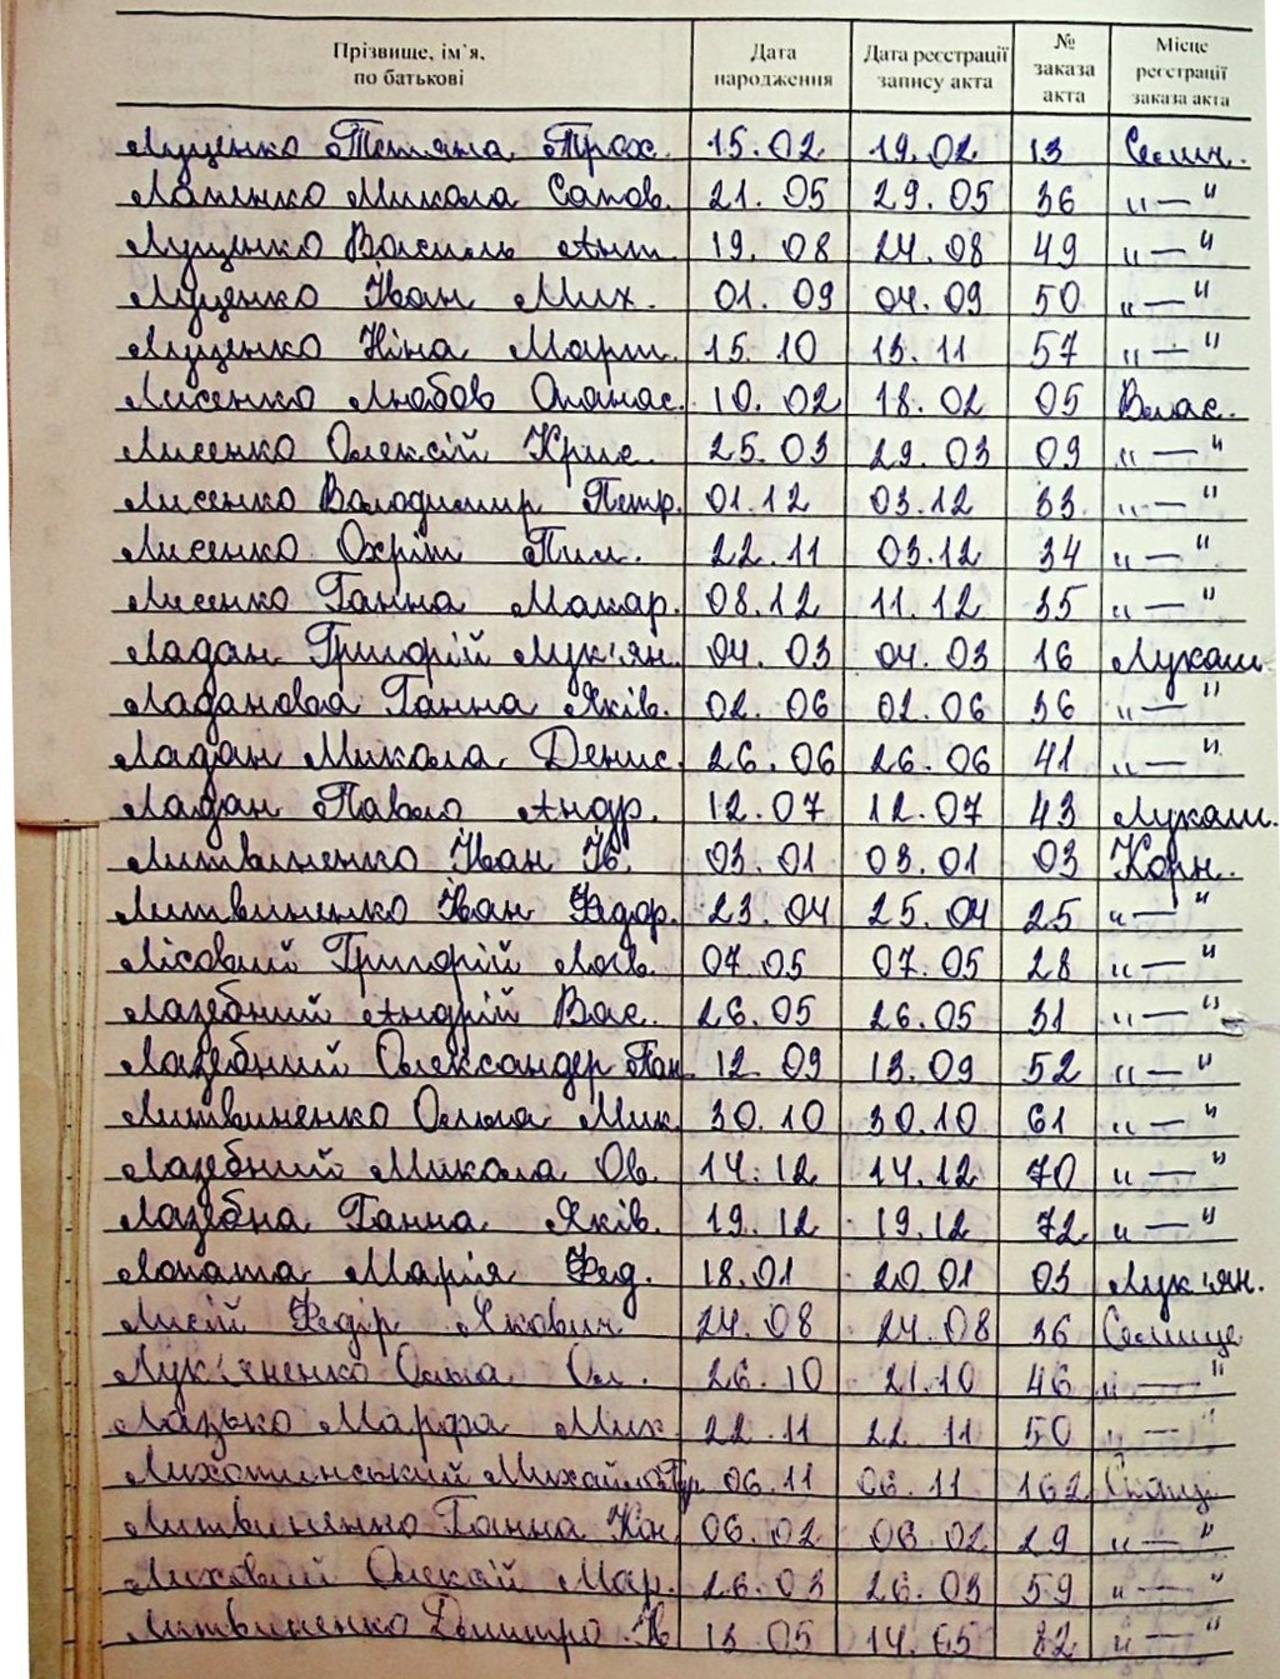 Прізвище, ім'я, по батькові Дата народження Дата реєстрації запису акта № заказа акта Місце реєстрації заказа акта
Луценко Тетяна Трох. 15.02 19.02 13 Селич.
Лопенко Микола Сапов. 21.05 29.05 36 „—"
Луценко Василь Ант. 19.08 24.08 49 „—"
Луценко Іван Мих. 01.09 04.09 50 „—"
Луценко Ніна Март. 15.10 13.11 57 „—"
Лисенко Любов Опанас. 10.02 18.02 05 Влас.
Лисенко Олексій Крис. 25.03 29.03 09 „—"
Лисенко Володимир Петр. 01.12 03.12 33 „—"
Лисенко Охрім Тим. 22.11 03.12 34 „—"
Лисенко Ганна Макар. 08.12 11.12 35 „—"
Ладан Григорій Лук'ян. 04.03 04.03 16 Лукаш.
Ладанова Ганна Яків. 02.06 02.06 36 „—"
Ладан Микола Денис. 26.06 26.06 41 „—"
Ладан Павло Андр. 12.07 12.07 43 Лукаш.
Литвиненко Іван Ів. 03.01 03.01 03 Корн.
Литвиненко Іван Федор. 23.04 25.04 25 „—"
Лісовий Григорій Логв. 07.05 07.05 28 „—"
Лазебний Андрій Вас. 26.05 26.05 31 „—"
Лазебний Олександер Пан. 12.09 13.09 52 „—"
Литвиненко Ольга Мик. 30.10 30.10 61 „—"
Лазебний Микола Ов. 14.12 14.12 70 „—"
Лазебна Ганна Яків. 19.12 19.12 72 „—"
Лопата Марія Фед. 18.01 20.01 03 Лук'ян.
Лисій Федір Якович 24.08 24.08 36 Селище
Лук'яненко Ольга Ол. 26.10 21.10 46 „—"
Лазько Марфа Мих. 22.11 22.11 50 „—"
Михайло Гр. 06.11 06.11 162
Литвиненко Ганна Кон. 06.02 06.02 29 „—"
Лиховий Олексій Мар. 26.03 26.03 59 „—"
Литвиненко Дмитро Ів. 13.05 14.05 82 „—"